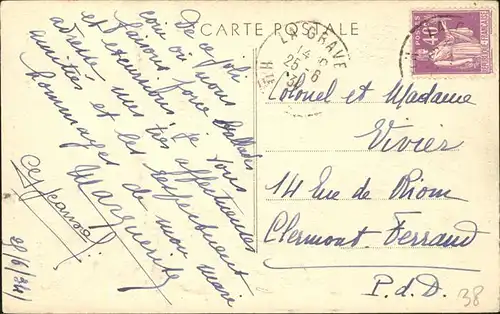 CARTE POSTALE
De ce joli
coin où nous
faisons force ballades
et excursions, je vous
adresse mes très affectueuses
amitiés et les respectueux
hommages de mon mari
Marguerite
25/6/34
LA GRAVE
14
25-6
34
POSTES
40
REPUBLIQUE FRANÇAISE
Colonel et Madame
Vivier
14 Rue de Riom
Clermont Ferrand
P. d. D.
38